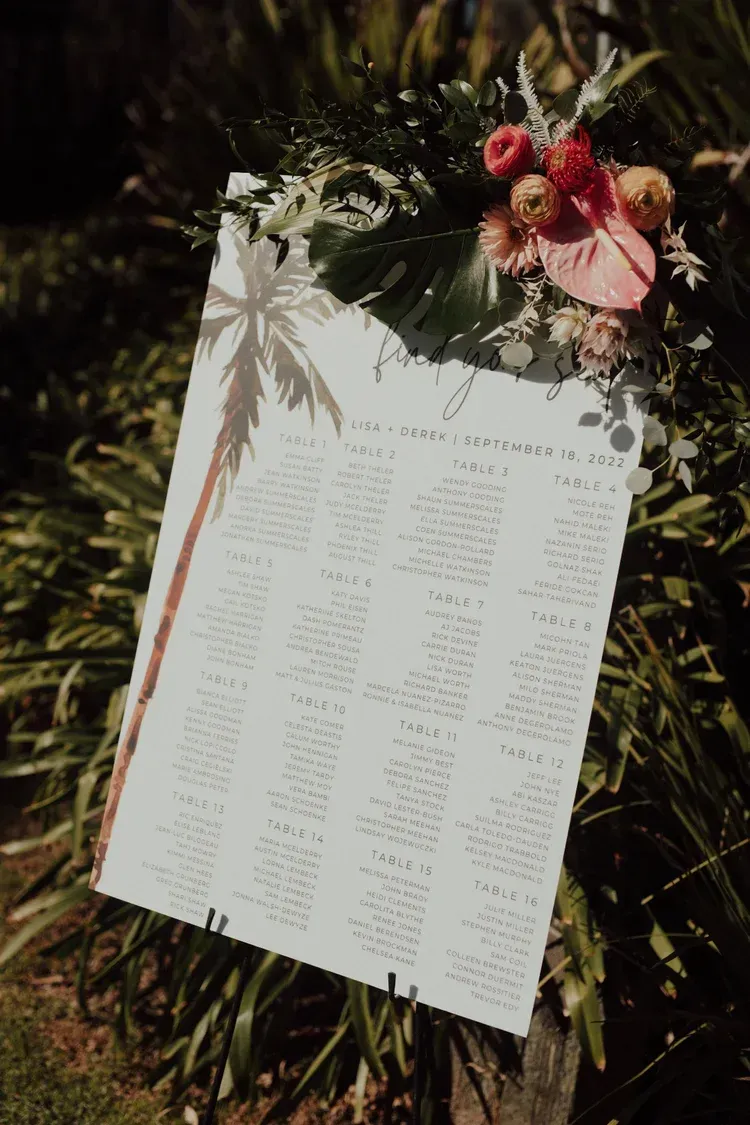 find your seat
LISA + DEREK | SEPTEMBER 18, 2022
TABLE 1
EMMA CLUFF
SUSAN BATTY
JENN WATKINSON
BARRY WATKINSON
ANDREW SUMMERSCALES
DEBORA SUMMERSCALES
DAVID SUMMERSCALES
MANDERY SUMMERSCALES
ANDREA SUMMERSCALES
JONATHAN SUMMERSCALES
TABLE 2
BETH THELER
ROBERT THELER
CAROLYN THELER
JACK THELER
JUDY MCELDERRY
TIM MCELDERRY
ASHLEA THILL
KYLEY THILL
PHOENIX THILL
AUGUST THILL
TABLE 3
WENDY GOODING
ANTHONY GOODING
SHAUN SUMMERSCALES
MELISSA SUMMERSCALES
ELLA SUMMERSCALES
EDEN SUMMERSCALES
ALISON GORDON-POLLARD
MICHAEL CHAMBERS
MICHELLE WATKINSON
CHRISTOPHER WATKINSON
TABLE 4
NICOLE PEH
MOTE PEH
NAHID MALEKI
MIKE MALEKI
NAZANIN SERIO
RICHARD SERIO
GOLNAZ SHAK
ALI FEDAEI
FERIDE GOKCAN
SAHAR TAHERIVAND
TABLE 5
KAYLEE SHAW
TIM SHAW
MEGAN KOSSKO
GAIL VOTERO
RACHEL HARRIGAN
MATTHEW HARRIGAN
AMANDA BIALKO
CHRISTOPHER BIALKO
DIANE BONHAM
JOHN BONHAM
TABLE 6
KATY DAVIS
PHIL EISEN
KATHERINE SKELTON
DASH POMERANTZ
KATHERINE PRIMEAU
CHRISTOPHER SOUSA
ANDREA BENDEWALD
MITCH ROUSE
LAUREN MORRISON
MATT & JULIUS GASTON
TABLE 7
AUDREY BANGS
AJ JACOBS
RICK DEVINE
CARRIE DURAN
NICK DURAN
LISA WORTH
MICHAEL WORTH
RICHARD BANKEE
MARCELA NUANEZ-PIZARRO
RONNIE & ISABELLA NUANEZ
TABLE 8
MICOHN TAN
MARK PRIOLA
LAURA JUERGENS
KEATON JUERGENS
ALISON SHERMAN
MILO SHERMAN
MADDY SHERMAN
BENJAMIN BROOK
ANNE DEGEROLAMO
ANTHONY DEGEROLAMO
TABLE 9
BIANCA ELLIOTT
SEAN ELLIOTT
ALISSA GOODMAN
KENNY GOODMAN
BRIANNA FERRISI
RICK LOPICCOLO
CRISTINA SANTANA
CRAIG CEGIELSKI
MARIE AMBROSINO
DOUGLAS PETES
TABLE 10
KATE COMER
CELESTA DEASTIS
CALUM WORTHY
JOHN HENNIGAN
TAMIKA WAYE
JEREMY TARDY
MATTHEW MOY
VERA BAMBI
AARON SCHOENKE
SEAN SCHOENKE
TABLE 11
MELANIE GIDEON
JIMMY BEST
CAROLYN PIERCE
DEBORA SANCHEZ
FELIPE SANCHEZ
TANYA STOCK
DAVID LESTER-BUSH
SARAH MEEHAN
CHRISTOPHER MEEHAN
LINDSAY WOJEWUCZKI
TABLE 12
JEFF LEE
JOHN NYE
ABI KASZAR
ASHLEY CARRIGG
BILLY CARRIGG
SUILMA RODRIGUEZ
CARLA TOLEDO-DAUDEN
RODRIGO TRABBOLD
KELSEY MACDONALD
KYLE MACDONALD
TABLE 13
RIC ENRIQUEZ
ELISA LEBLANC
JEAN-LUC BILODEAU
TAMI MOWRY
KIMMI MESSINA
GLEN HEES
ELIZABETH GRUNBERG
GREG GRUNBERG
SHARI SHAW
RICK SHAW
TABLE 14
MARIA MCELDERRY
AUSTIN MCELDERRY
LORNA LEMBECK
MICHAEL LEMBECK
NATALIE LEMBECK
SAM LEMBECK
JONNA WALSH-DEWYZE
LEE DEWYZE
TABLE 15
MELISSA PETERMAN
JOHN BRADY
HEIDI CLEMENTS
CAROLITA BLYTHE
RENEE JONES
DANIEL BERENDSEN
KEVIN BROCKMAN
CHELSEA KANE
TABLE 16
JULIE MILLER
JUSTIN MILLER
STEPHEN MURPHY
BILLY CLARK
SAM COIL
COLLEEN BREWSTER
CONNOR DUERMIT
ANDREW ROSSITIER
TREVOR EDY